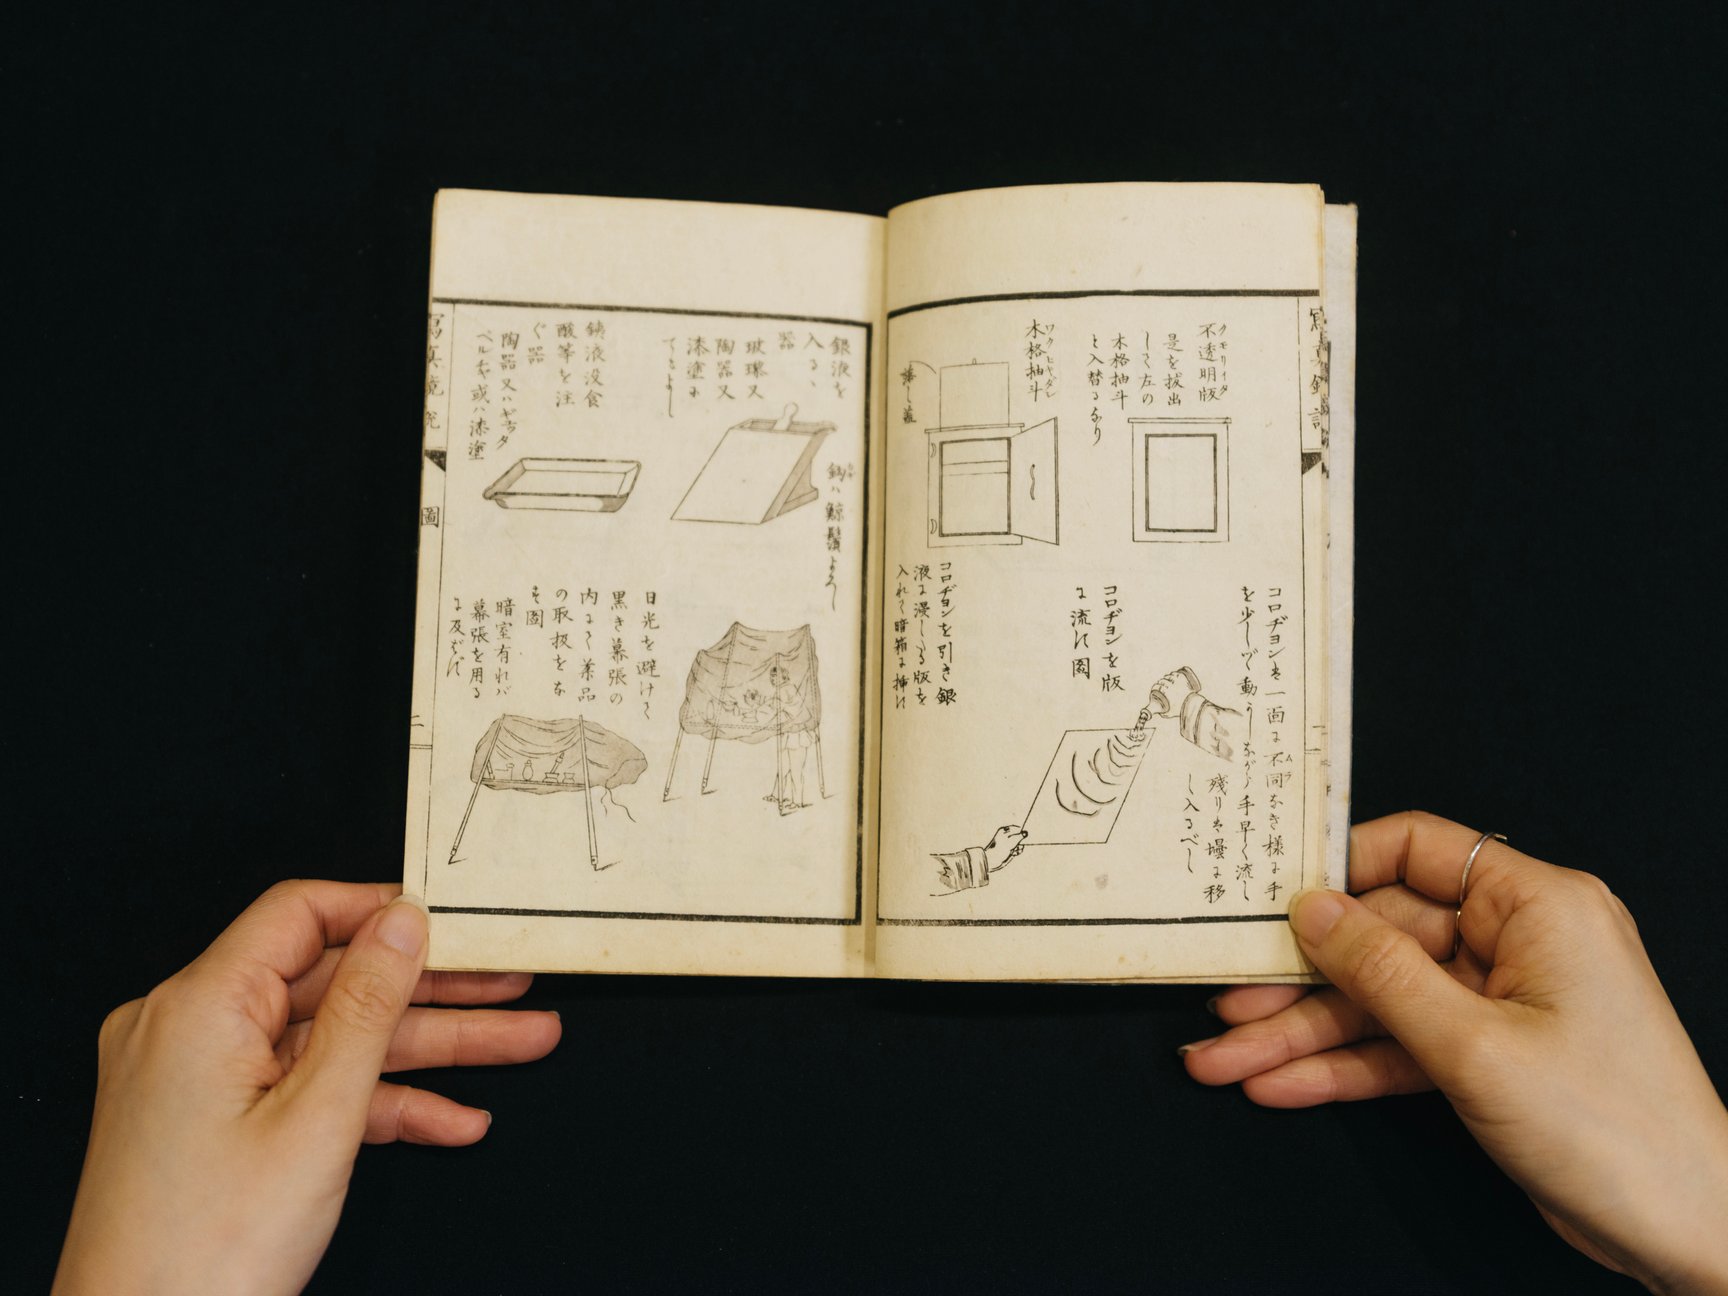 不透明版
クモリイタ
是を拔出
して左の
木格抽斗
と入替るなり
木格抽斗
ワクヒキダシ
コロヂヨンは一面に不同なき様に手
ムラ
を少しづゝ動かしながら手早く流し
残りは壜に移
し入るべし
コロヂヨンを版
に流す圖
コロヂヨンを引き銀
液に浸したる版を
入れて暗箱に挿す
銀液を
入るゝ
器
玻璃又
陶器又
漆塗に
てもよし
鈎ハ鯨鬚よろし
鉄液没食
酸等を注
ぐ器
陶器又ハギッタ
ペルチャ或ハ漆塗
日光を避けて
黒き幕張の
内にて薬品
の取扱をな
す圖
暗室有れバ
幕張を用る
に及ばず
圖
二